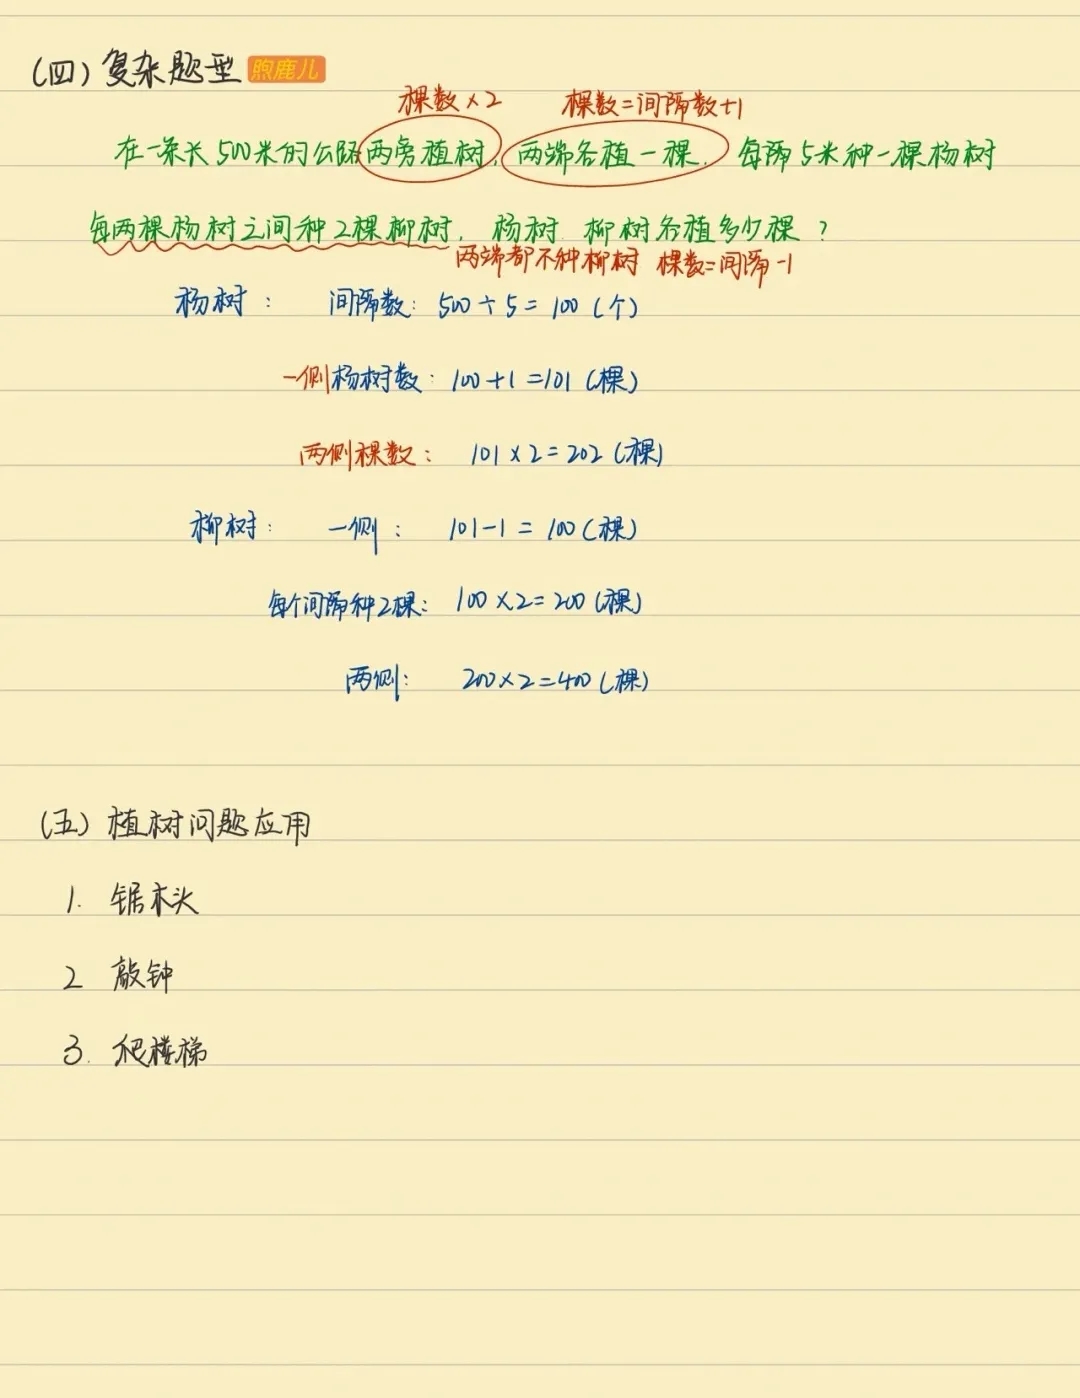 (四) 复杂题型 煦鹿儿
棵数×2 棵数=间隔数+1
在一条长500米的公路两旁植树, 两端各植一棵, 每隔5米种一棵杨树
每两棵杨树之间种2棵柳树, 杨树 柳树各植多少棵?
两端都不种柳树 棵数=间隔-1
杨树: 间隔数: 500÷5=100(个)
一侧杨树数: 100+1=101(棵)
两侧棵数: 101×2=202(棵)
柳树: 一侧: 101-1=100(棵)
每个间隔种2棵: 100×2=200(棵)
两侧: 200×2=400(棵)
(五) 植树问题应用
1. 锯木头
2 敲钟
3. 爬楼梯